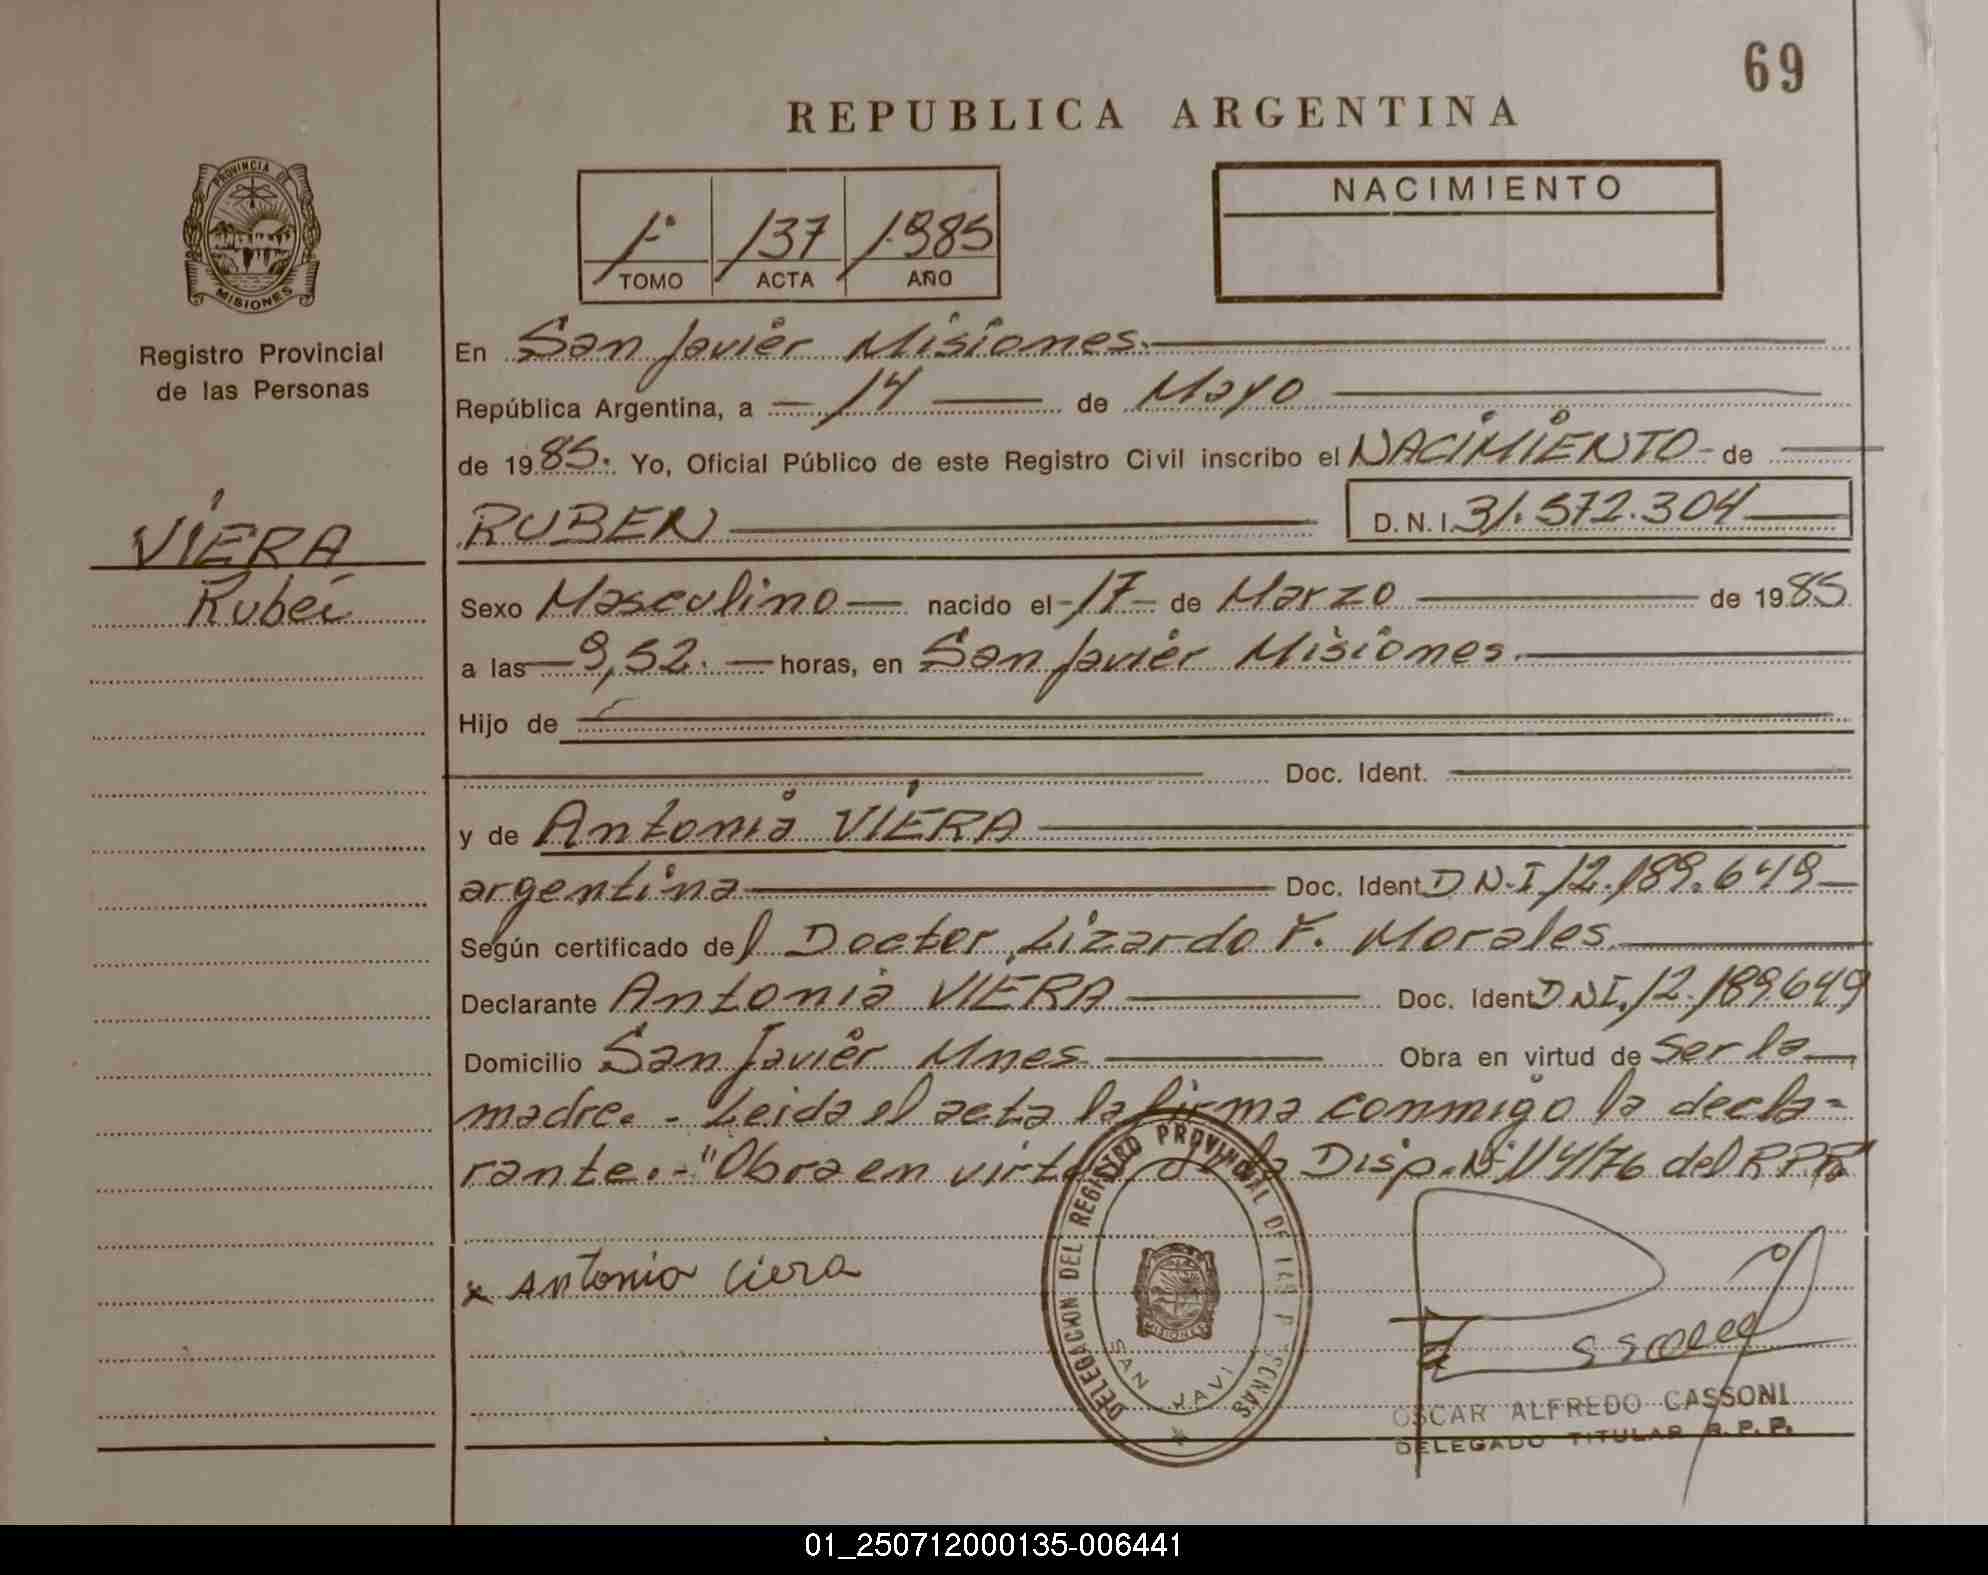 69
REPUBLICA ARGENTINA
PROVINCIA DE
MISIONES
Registro Provincial
de las Personas
1º 137 1985
TOMO ACTA AÑO
NACIMIENTO
En San Javier Misiones.
República Argentina, a 14 de Mayo
de 1985. Yo, Oficial Público de este Registro Civil inscribo el NACIMIENTO de
VIERA
RUBEN D.N.I. 31.572.304
Sexo Masculino nacido el 17 de Marzo de 1985
a las 9,52. horas, en San Javier Misiones.
Hijo de
Doc. Ident.
y de Antonia VIERA
argentina Doc. Ident D.N.I 12.189.649
Según certificado del Doctor Lizardo F. Morales
Declarante Antonia VIERA Doc. Ident D.N.I. 12.189.649
Domicilio San Javier Mnes Obra en virtud de ser la
madre. - Leida el acta la firma conmigo la decla=
rante.- "Obra en la Disp. Nº 114/76 del
x Antonia Viera
DELEGACION DEL REGISTRO PROVINCIAL DE LAS
SAN JAVI
MISIONES
OSCAR ALFREDO CASSONI
DELEGADO TITULAR R.P.P.
01_250712000135-006441